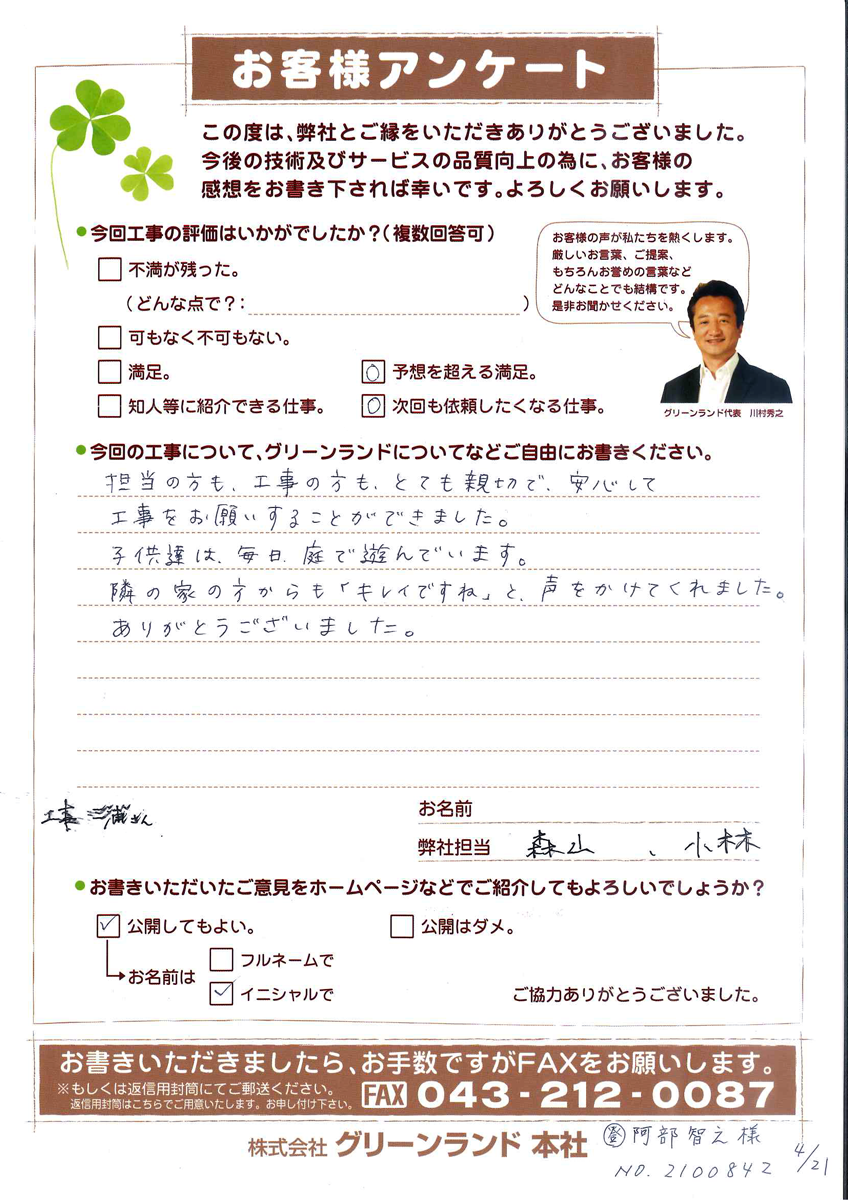 お客様アンケート
この度は、弊社とご縁をいただきありがとうございました。
今後の技術及びサービスの品質向上の為に、お客様の
感想をお書き下されば幸いです。よろしくお願いします。
●今回工事の評価はいかがでしたか?(複数回答可)
不満が残った。
(どんな点で?: )
可もなく不可もない。
満足。 予想を超える満足。
知人等に紹介できる仕事。 次回も依頼したくなる仕事。
お客様の声が私たちを熱くします。
厳しいお言葉、ご提案、
もちろんお誉めの言葉など
どんなことでも結構です。
是非お聞かせください。
グリーンランド代表 川村秀之
●今回の工事について、グリーンランドについてなどご自由にお書きください。
担当の方も、工事の方も、とても親切で、安心して
工事をお願いすることができました。
子供達は、毎日、庭で遊んでいます。
隣の家の方からも「キレイですね」と、声をかけてくれました。
ありがとうございました。
工事 三浦さん
お名前
弊社担当 森山、小林
●お書きいただいたご意見をホームページなどでご紹介してもよろしいでしょうか?
公開してもよい。 公開はダメ。
お名前は
フルネームで
イニシャルで
ご協力ありがとうございました。
お書きいただきましたら、お手数ですがFAXをお願いします。
※もしくは返信用封筒にてご郵送ください。
返信用封筒はこちらでご用意いたします。お申し付け下さい。
FAX 043-212-0087
株式会社 グリーンランド 本社
登 阿部智之様
NO. 2100842
4/21